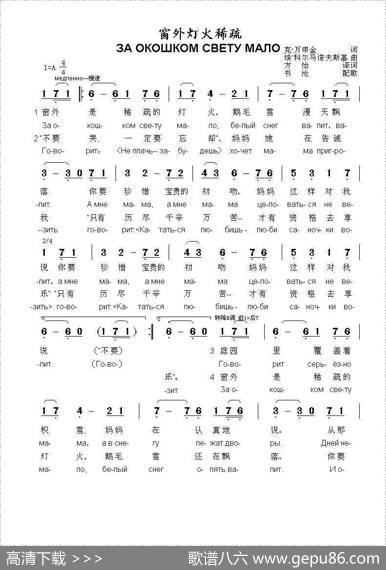 窗外灯火稀疏
ЗА ОКОШКОМ СВЕТУ МАЛО
克·万申金 词
埃·科尔马诺夫斯基 曲
方怡 译词
书沧 配歌
1=A 4/4
медленно—慢速
1 7 1 6 – 6 1 7 6 4 – 2 1 7 – 7 2 1 7 6 1 7 1
1 窗外 是 稀 疏的 灯 火, 鹅毛 雪 漫 天飘
За о- кош- ком све-ту ма- ло, белый снег ва- лит, ва-
2 “不要 哭, 一 定要 忘 却”, 妈妈 她 在 告诫
Го-во- рит: <Не плачь—за- бу- дешь> хо-чет ма- ма приго-
3 – 3 0 1 7 1 3 – 2 7 2 4 3 6 – 4 3 1 7 6 1 7 1
落 你要 珍 惜 宝贵的 初 吻, 妈妈 这 样 对我
-лит. А мне ма- ма, а мне ма- ма це-ло- вать-ся не ве-
我 “只有 历 尽 千辛 万 苦—才有 资 格 去享
--зить го-во- рит:<Ка- тать-ся лю-бишь-лю-би са- ноч- ки во-
2/4
1 7 1 3 – 2 7 2 4 3 6 – 4 3 1 7 6 1 7 1
说 你要 珍 惜 宝贵的 初 吻 妈妈 这 样 对我
-лит, а мне ма- ма, а мне ма- ма це-ло- вать-ся не ве-
乐” “只有 历 尽 千辛 万 苦—才有 资 格 去享
-зить> го-во- рит:<Ка- тать-ся лю-бишь-лю-би са- ноч- ки во-
6 – 6 0 1 7 1 6 – 6 0 6 – 6 0 1 7 1 1 7 6
说 (“不要) 3 庭园 里 覆 盖着
-лит. (Го-во-) Го-во- рит серь-ёз-но
乐”。 4 窗外 是 稀 疏的
-зит За о- кош- ком све-ту
4 – 2 1 7 – 7 2 1 7 6 1 7 1 3 – 3 0 1 7 1
积 雪, 妈妈 在 认 真地 说。 从那
ма- ма, а в сне-гу ле- жат дво- ры. Дней не-
灯 火, 鹅毛 雪 还 在飘 落。 你要
ма- ло, бе-лый снег о- пять ва- лит. И о-
高清下载 >>>
歌谱八六 www.gepu86.com